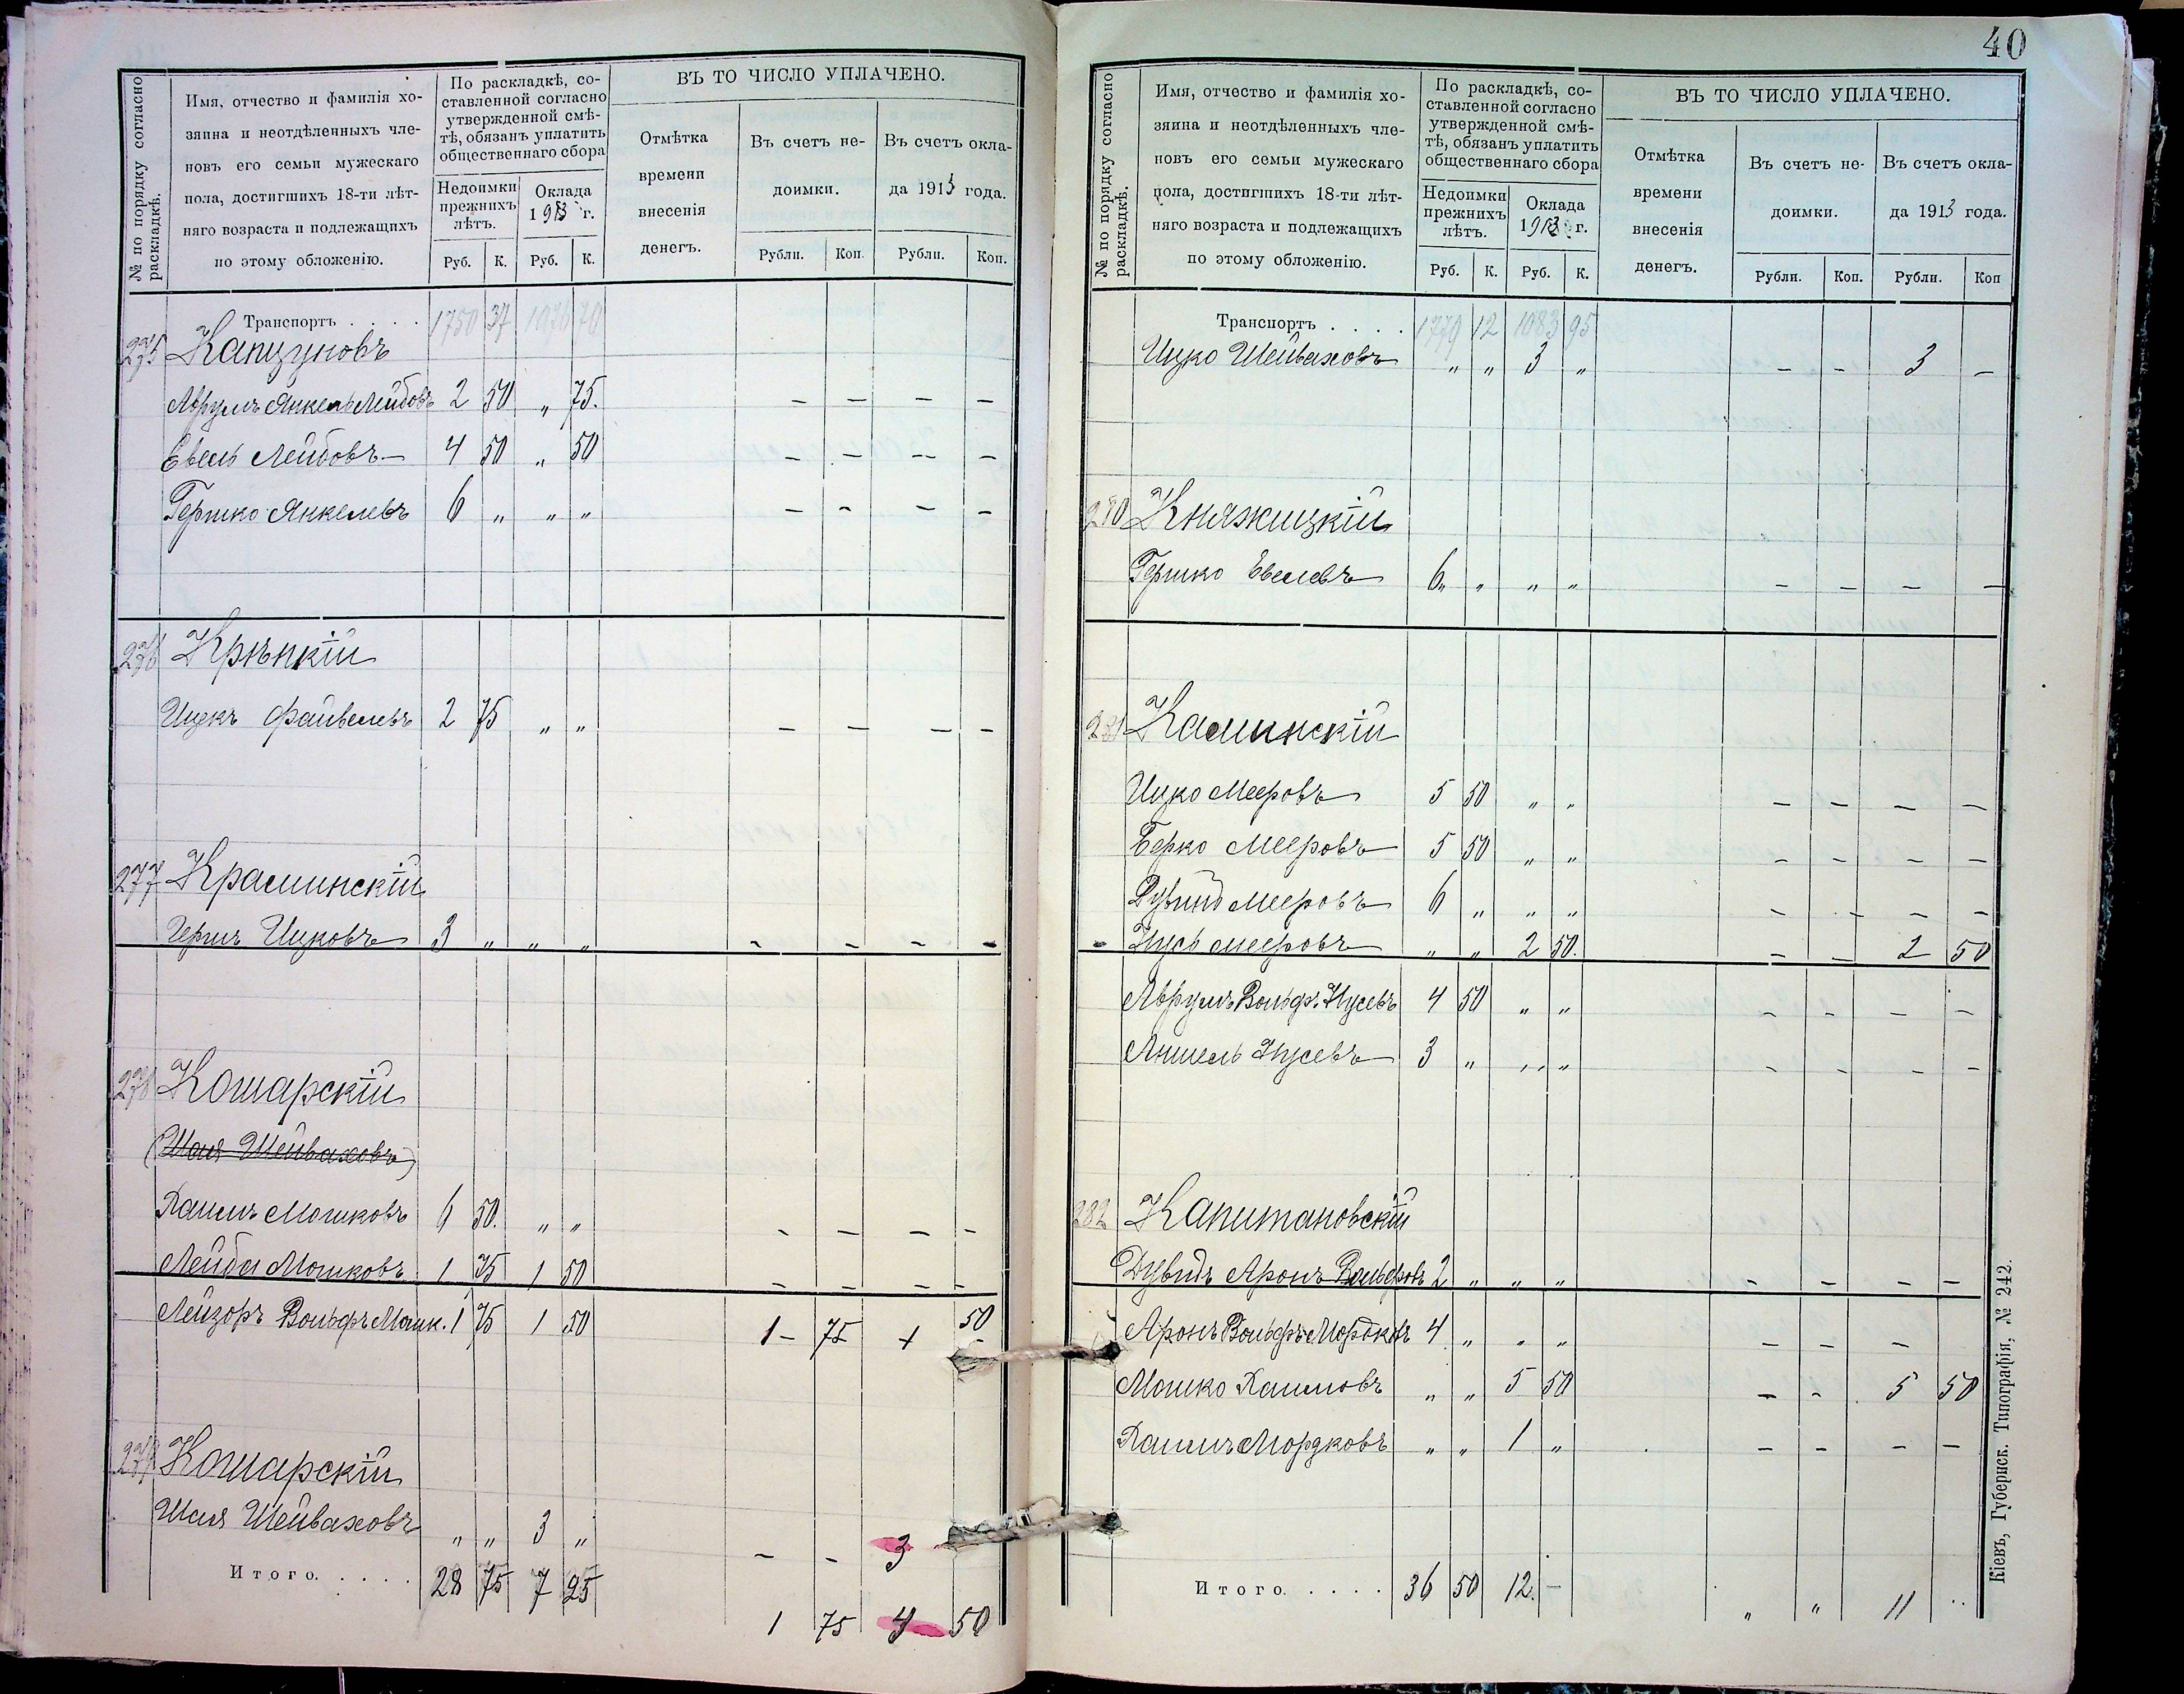 № по порядку согласно раскладкѣ.
Имя, отчество и фамилія хо-
зяина и неотдѣленныхъ чле-
новъ его семьи мужескаго
пола, достигшихъ 18-ти лѣт-
няго возраста и подлежащихъ
по этому обложенію.
По раскладкѣ, со-
ставленной согласно
утвержденной смѣ-
тѣ, обязанъ уплатить
общественнаго сбора
Недоимки
прежнихъ
лѣтъ.
Оклада
1913 г.
Руб. К. Руб. К.
ВЪ ТО ЧИСЛО УПЛАЧЕНО.
Отмѣтка
времени
внесенія
денегъ.
Въ счетъ не-
доимки.
Въ счетъ окла-
да 1913 года.
Рубли. Коп. Рубли. Коп.
Транспортъ . . . . 1750 37 1076 70
275 Капцуновъ
Аврумъ Янкель Лейбовъ 2 50 „ 75. — — — —
Евель Лейбовъ — 4 50 „ 50 — — — —
Гершко Янкелевъ 6 „ „ „ — — — —
276 Крѣпкій
Ицекъ Файвелевъ 2 75 „ „ — — — —
277 Краминскій
Гершъ Ицковъ 3 „ „ „ — — — —
278 Кошарскій
(Шая Шейваховъ)
Хаимъ Мошковъ 6 50. „ „ — — — —
Лейба Мошковъ 1 75 1 50 — — — —
Лейзоръ Вольфъ Мошк. 1 75 1 50 1 — 75 1 50
279 Кошарскій
Шая Шейваховъ „ „ 3 „ — — 3
Итого. . . . . 28 75 7 25 1 75 4 50
40
№ по порядку согласно раскладкѣ.
Имя, отчество и фамилія хо-
зяина и неотдѣленныхъ чле-
новъ его семьи мужескаго
пола, достигшихъ 18-ти лѣт-
няго возраста и подлежащихъ
по этому обложенію.
По раскладкѣ, со-
ставленной согласно
утвержденной смѣ-
тѣ, обязанъ уплатить
общественнаго сбора
Недоимки
прежнихъ
лѣтъ.
Оклада
1913 г.
Руб. К. Руб. К.
ВЪ ТО ЧИСЛО УПЛАЧЕНО.
Отмѣтка
времени
внесенія
денегъ.
Въ счетъ не-
доимки.
Въ счетъ окла-
да 1913 года.
Рубли. Коп. Рубли. Коп
Транспортъ . . . . 1779 12 1083 95
Ицко Шейваховъ „ „ 3 „ — — 3 —
280 Княжицкій
Гершко Евелевъ 6 „ „ „ — — — —
281 Калинскій
Ицко Мееровъ 5 50 „ „ — — — —
Берко Мееровъ 5 50 „ „ — — — —
Дувидъ Мееровъ 6 „ „ „ — — — —
— Нусь Мееровъ „ „ 2 50. — — 2 50
Аврумъ Вольф. Нусевъ 4 50 „ „ — — — —
Аншель Нусевъ 3 „ „ „ — — — —
282 Капитановскій
Дувидъ Аронъ Вольфовъ 2 „ „ „ — — — —
Аронъ Вольфъ Мордковъ 4 „ „ „ — — —
Мошко Хаимовъ „ „ 5 50 — — 5 50
Хаимъ Мордковъ „ „ 1 „ — — — —
Итого. . . . . 36 50 12. — „ „ 11 ..
Кіевъ, Губернск. Типографія, № 242.